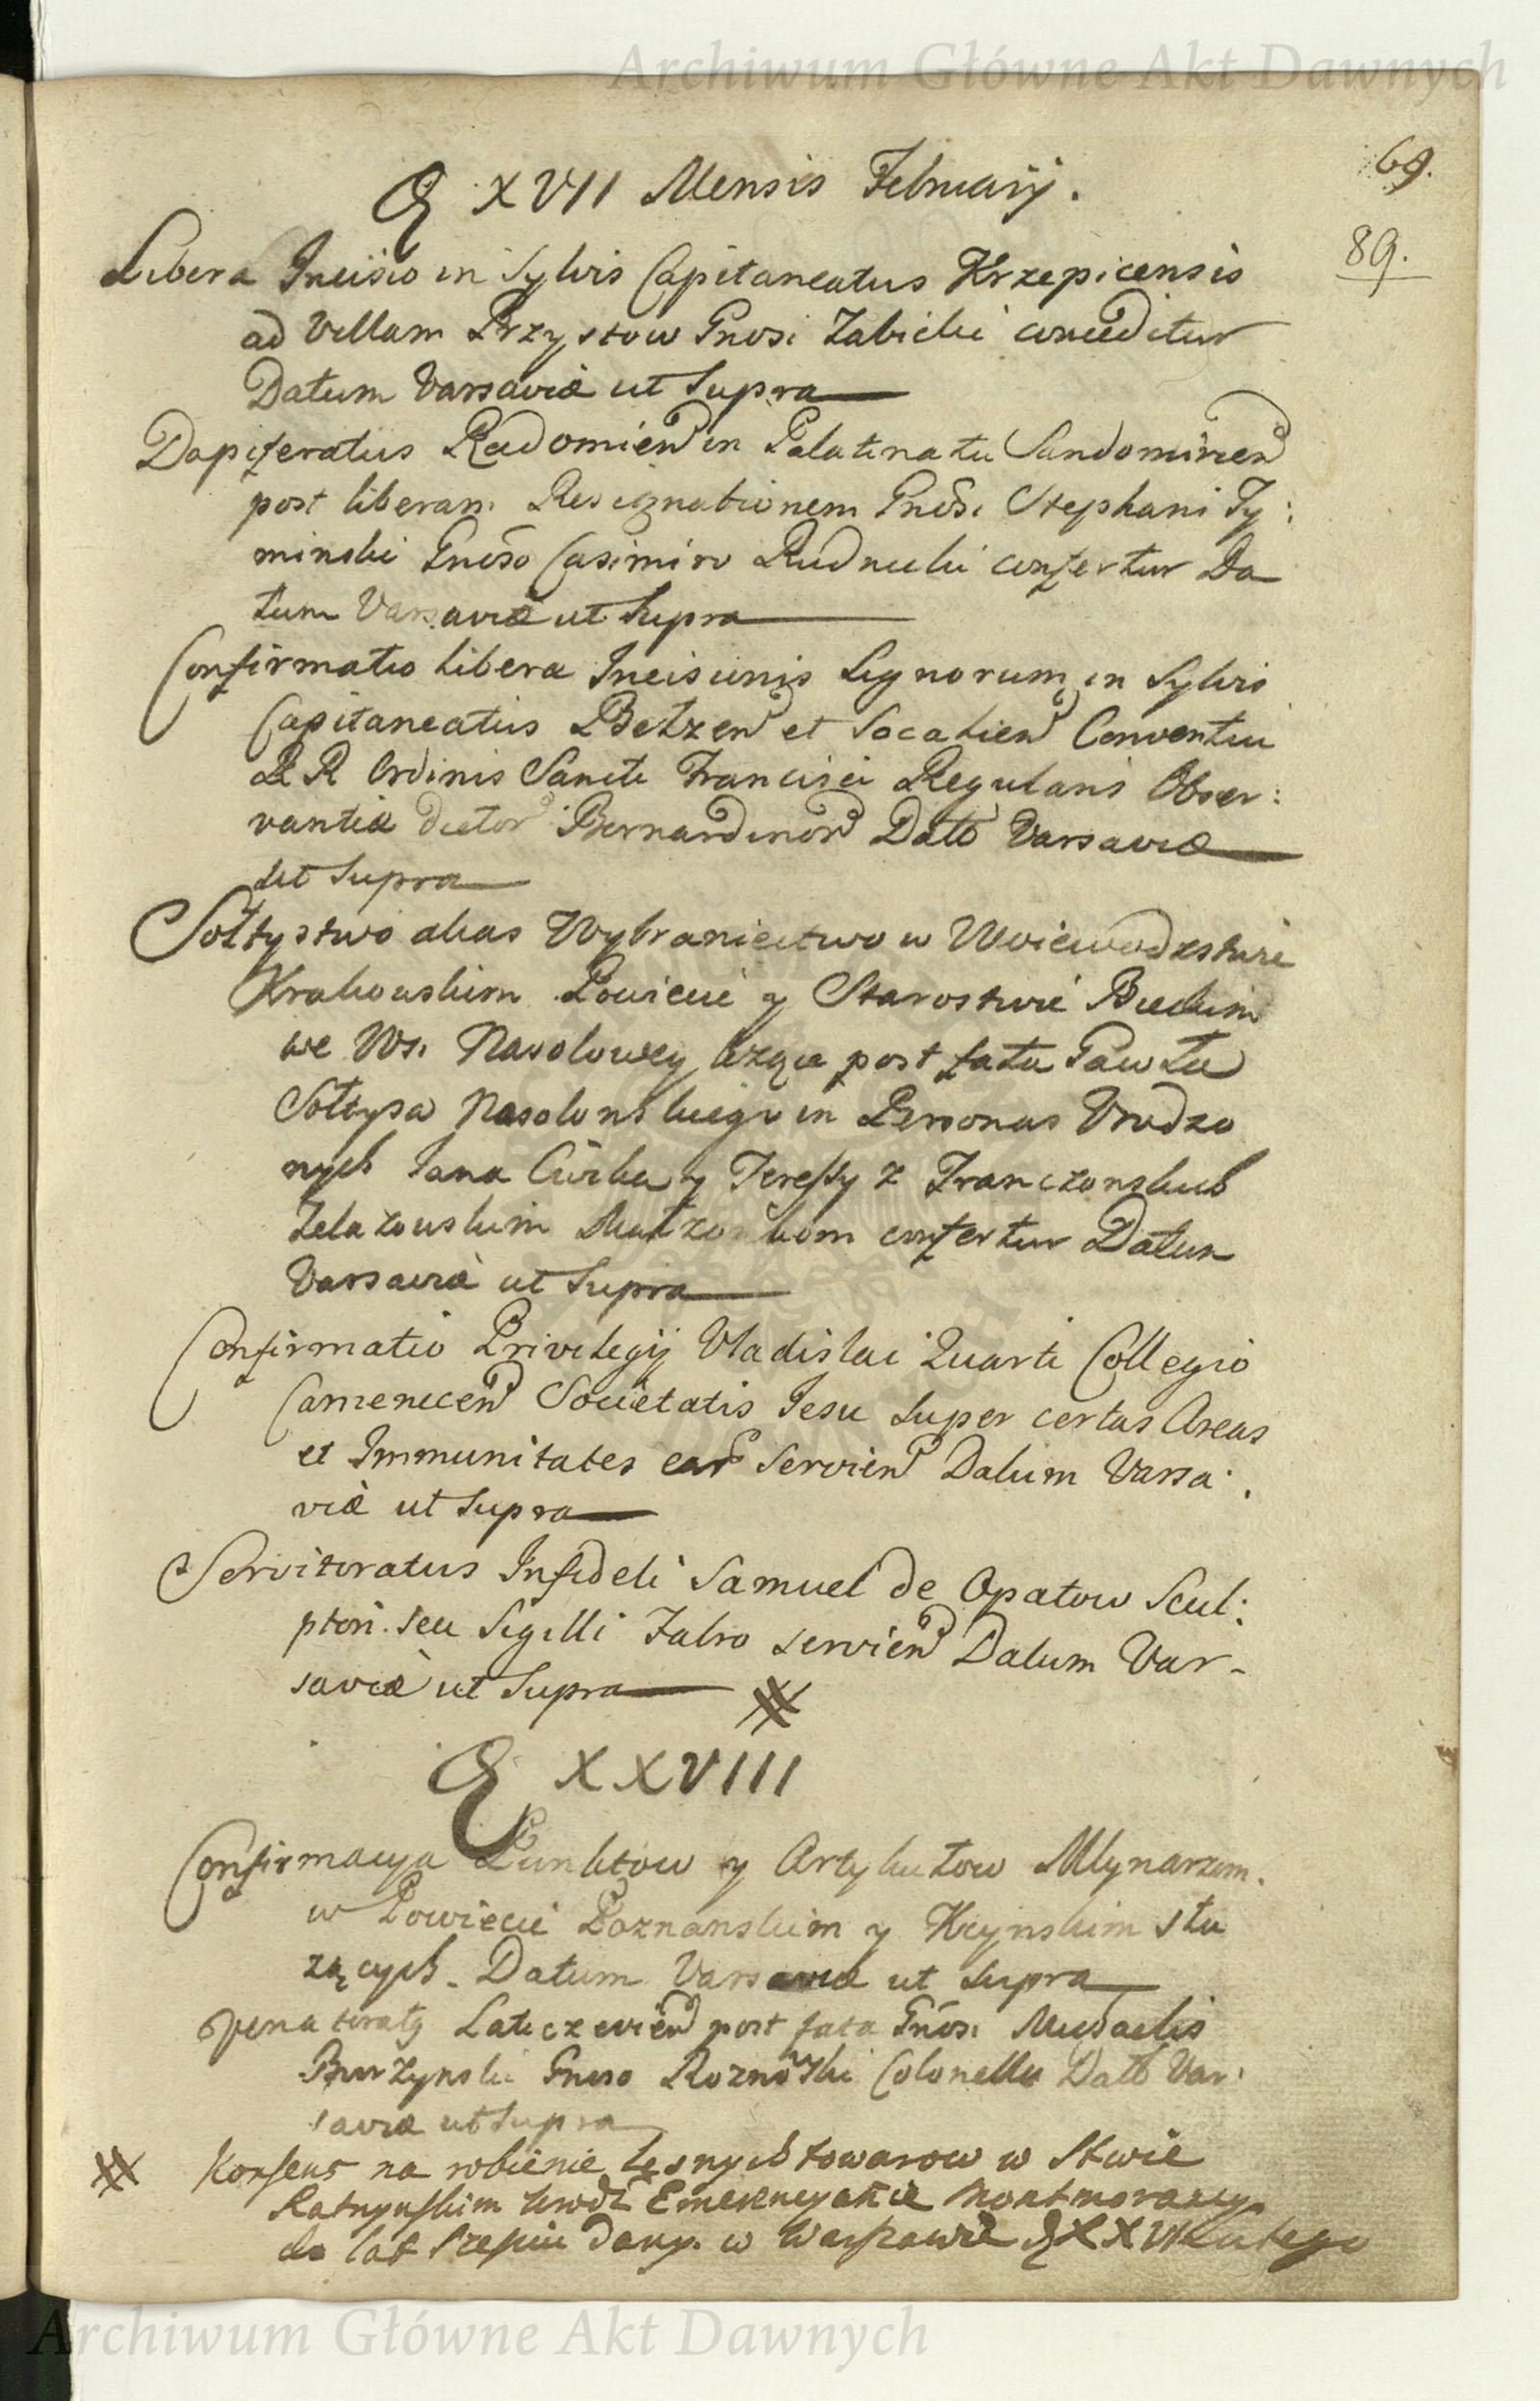 Archiwum Główne Akt Dawnych
69.
89.
D XVII Mensis Februarij.
Libera Incisio in Sylvis Capitaneatus Krzepicensis
ad Villam Przystow Gnosi Zabicki conceditur
Datum Varsaviæ ut Supra
Dapiferatus Radomien in Palatinatu Sandomirien
post liberam Resignationem Gnosi Stephani Ty:
minski Gnoso Casimiro Rudnicki confertur Da
tum Varsaviæ ut Supra
Confirmatio libera Incisionis Lignorum in Sylvis
Capitaneatus Betzen et Socalien Conventui
R R Ordinis Sancti Francisci Regularis Obser:
vantiæ dictor Bernardinor Datt Varsaviæ
ut Supra
Sołtystwo alias Wybraniectwo w Woiewodzstwie
Krakowskim Powiecie y Starostwie Bieckim
we Wsi Nasolowey lezące post fata Pawła
Sołtysa Nasolonskiego in Personas Urodzo
nych Jana y Teressy z Franczonskich
Zelazowskim Małzonkom confertur Datum
Varsaviæ ut Supra
Confirmatio Privilegij Vladislai Quarti Collegio
Camenecen Societatis Jesu Super certas Areas
et Immunitates ear Servien Datum Varsa:
viæ ut Supra
Servitoratus Infideli Samuel de Opatow Scul:
ptori seu Sigilli Fabro servien Datum Var-
saviæ ut Supra #
D XXVIII
Confirmacya Punktow y Artykułow Młynarzom
w Powiecie Poznanskim y Kcynskim słu
zących. Datum Varsaviæ ut Supra
Venatoratg Laticzevien post fata Gnosi Michaelis
Burzynski Gnoso Roznowski Colonello Datt Var:
saviæ ut Supra
# Konsens na robienie leśnych towarow w Stwie
Ratnynskim Urodz
do lat szesciu dany. w Warszawie D XXVII Lutego
Archiwum Główne Akt Dawnych